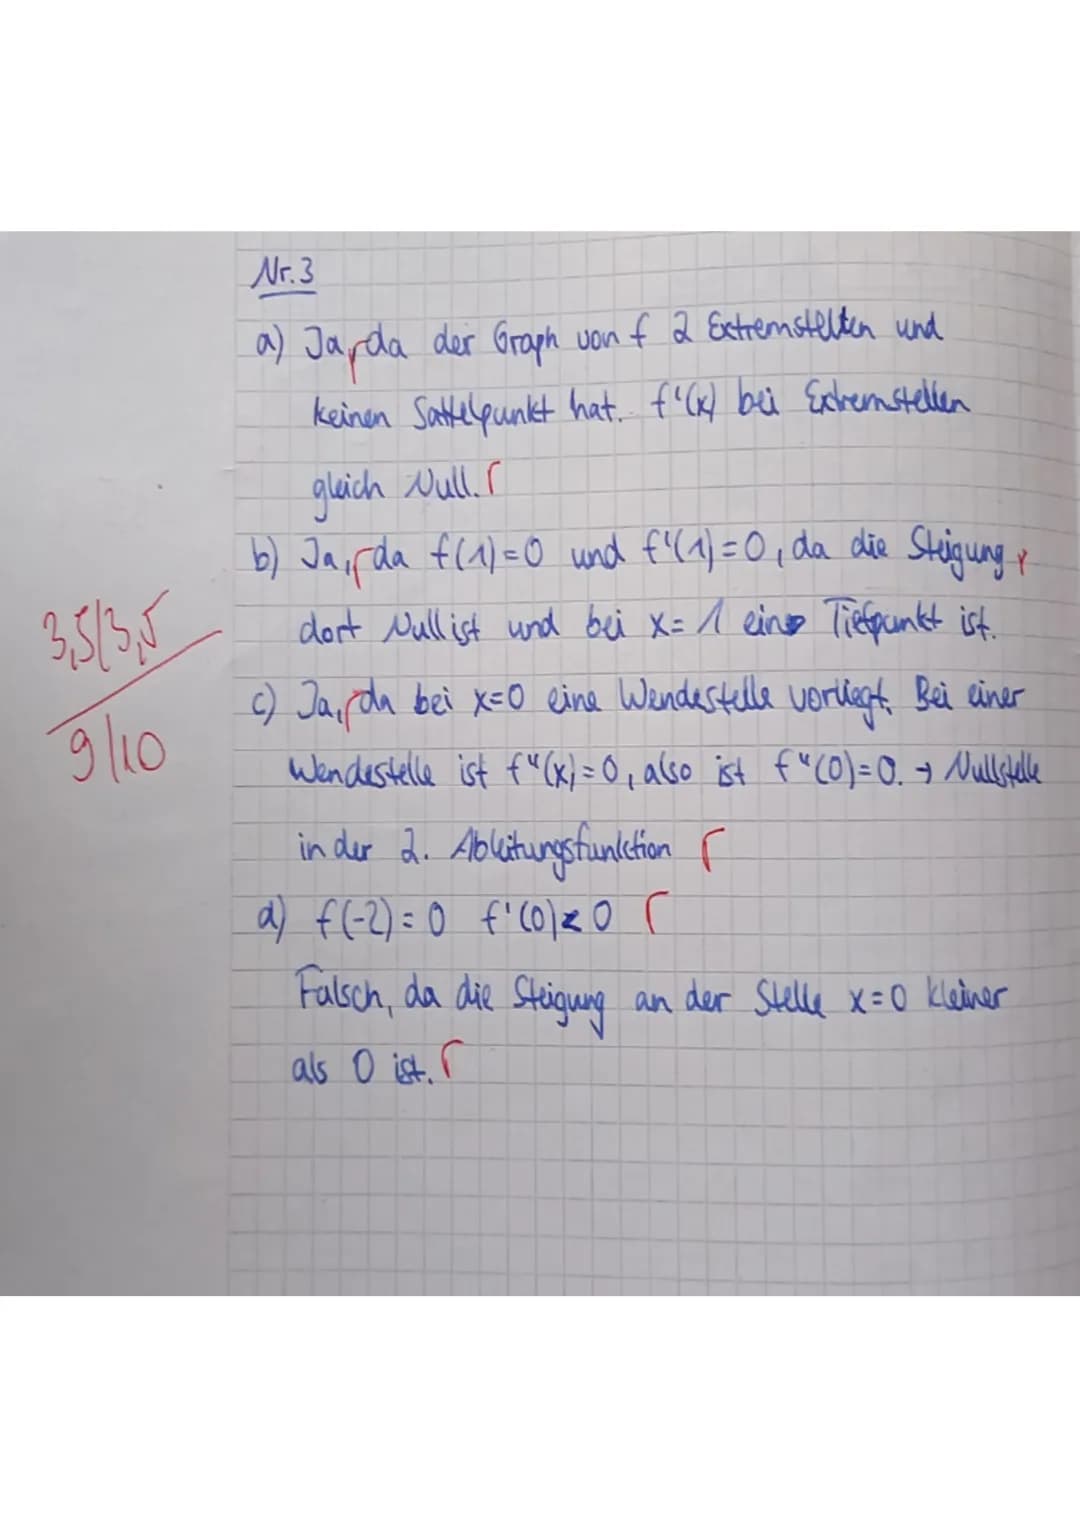 Nr. 3
a) Ja, da der Graph von f 2 Extremstellen und
keinen Sattelpunkt hat. f'(x) bei Extremstellen
gleich Null. r
b) Ja, da f(1)=0 und f'(1)=0, da die Steigung r
dort Null ist und bei x=1 ein Tiefpunkt ist.
3,5/3,5
9/10
c) Ja, da bei x=0 eine Wendestelle vorliegt. Bei einer
Wendestelle ist f"(x)=0, also ist f"(0)=0. → Nullstelle
in der 2. Ableitungsfunktion r
d) f(-2)=0 f'(0)<0 r
Falsch, da die Steigung an der Stelle x=0 kleiner
als 0 ist. r